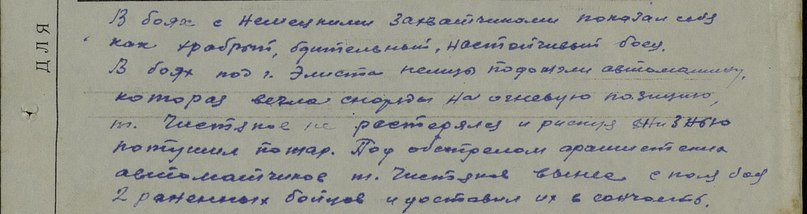 ДЛЯ
В боях с немецкими захватчиками показал себя
как храбрый, бдительный, настойчивый боец.
В боях под г. Элиста немцы подожгли автомашину,
которая везла снаряды на огневую позицию,
т. Чистяков не растерялся и рискуя жизнью
потушил пожар. Под обстрелом фашистских
автоматчиков т. Чистяков вынес с поля боя
2 раненных бойцов и доставил их в санчасть.